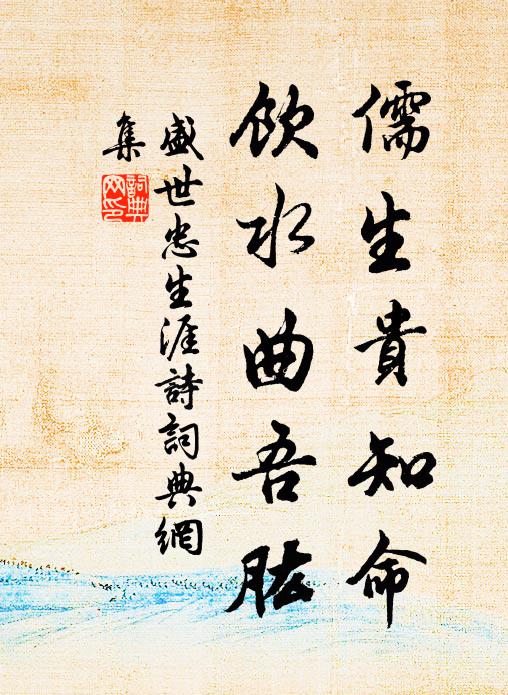 儒生貴知命
飲水曲吾肱
盛世忠生涯詩詞典網
集
詞典網印